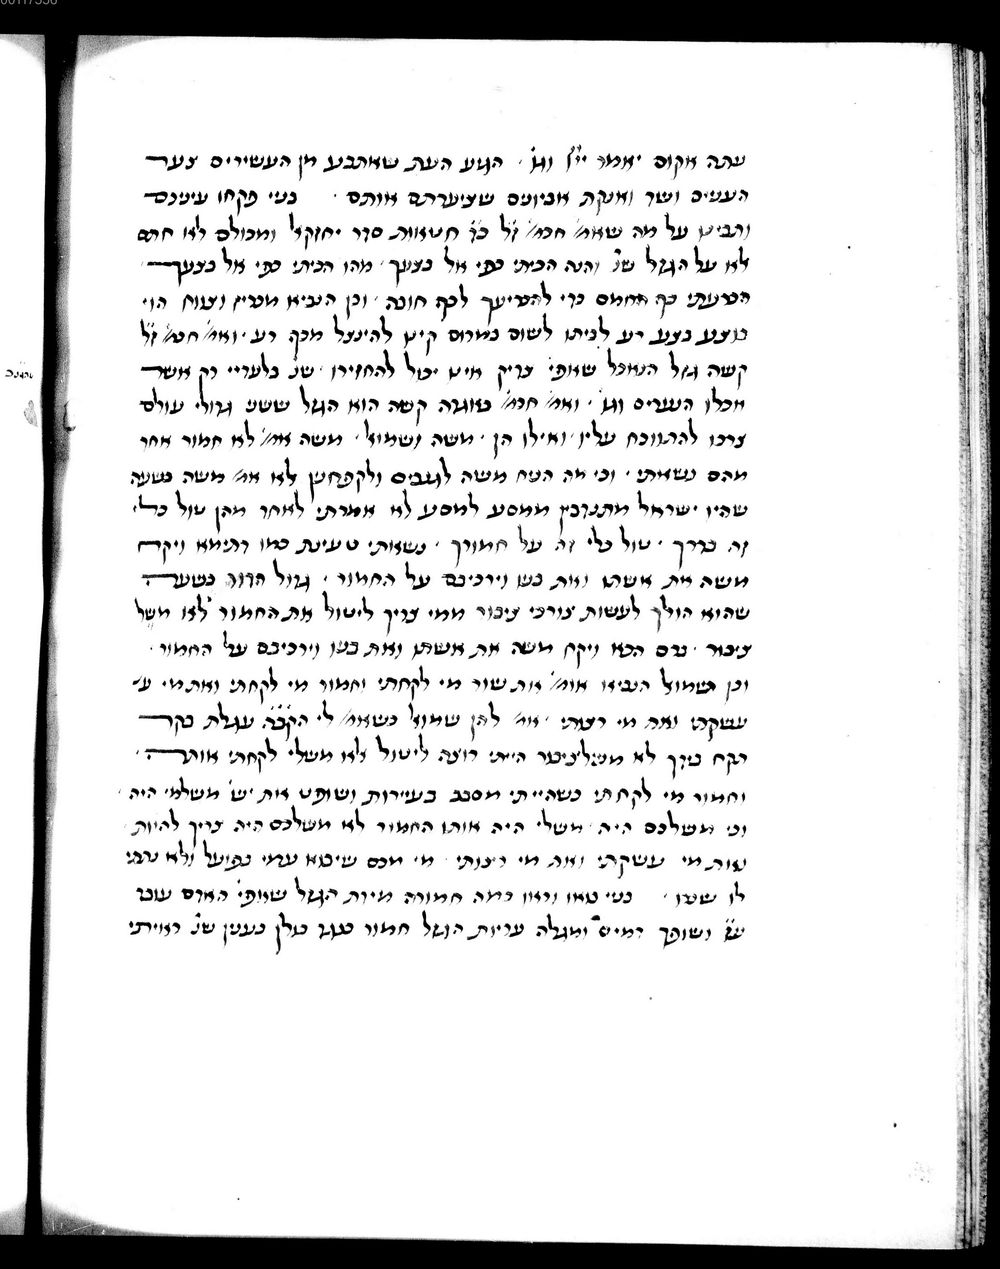 עתה אקום יאמר ייי וגו׳ · הגיע העת שאתבע מן העשירים צער
העניים ושוד ואנקת אביונים שציערתם אותם · בני פקחו עיניכם
והביטו על מה שאמ׳ חכמ׳ ז״ל כך חטאות סדר יחזקאל ומכולם לא חתם
לא על הגזל שנ׳ והנה הכיתי כפי אל בצעך · מהו הכיתי כפי אל בצעך
הטיעתי כף תחמס כדי להטריעך לכף חובה · וכן הנביא מכריז וצווח הוי
בוצע בצע רע לביתו לשום במרום קינו להינצל מכף רע · ואמ׳ חכמ׳ ז״ל
קשה גזל הנאכל שאפי׳ צדיק אינו יכול להחזירו · שנ׳ בלעדיי רק אשר
אכלו הנערים וגו׳ · ואמ׳ חכמ׳ באגדה קשה הוא הגזל ששני גדולי עולם
צרכו להתווכח עליו · ואילו הן · משה ושמואל · משה אמ׳ לא חמור אחד
מהם נשאתי · וכי מה הניח משה לגנבים ולקפחנין אלא אמ׳ משה בשעה
שהיו ישראל מתנהגין ממסע למסע לא אמרתי לאחד מהן טול כלי
זה בדרך · טול כלי זה על חמורך · נשאתי טעינת כמו דתימא ויקח
משה את אשתו ואת בניו וירכיבם על החמור · גדול הדור בשעה
שהוא הולך לעשות צורכי ציבור ממי צריך ליטול את החמור לא משל
ציבור · ברם הכא ויקח משה את אשתו ואת בניו וירכיבם על החמור ·
וכן שמואל הנביא אומ׳ את שור מי לקחתי וחמור מי לקחתי ואת מי ע׳
עשקתי ואת מי רצותי · אמ׳ להן שמואל כשאמ׳ לי הקב״ה עגלת בקר
תקח בידך לא משלציבור הייתי רוצה ליטול אלא משלי לקחתי אותה ·
וחמור מי לקחתי כשהייתי מסבב בעיירות ושופט את יש׳ משלמי היה ·
וכי משלכם היה · משלי היה אותו החמור לא משלכם היה צריך להיות ·
ואת מי עשקתי ואת מי ריצותי · מי מכם שיבוא עמי בפועל ולא נתתי
לו שכרו · בני בואו וראו כמה חמורה מידת הגזל שאפי׳ האדם עובד
ע״ז ושופך דמים ומגלה עריות הגזל חמור כנגד כולן כענין שנ׳ ראויתי